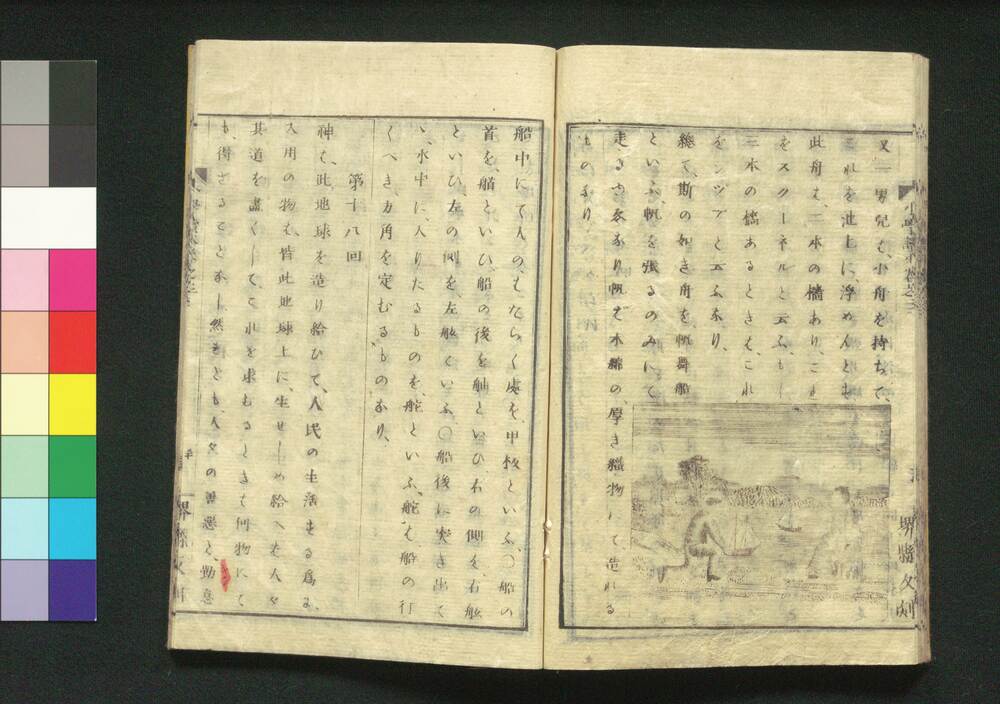 又二男児は、小舟を持ちて、
これを池上に、浮めんとす
此舟は、二本の檣あり、これ
をスクーネルと云ふ、もし
三本の檣あるときは、これ
をシップと云ふなり、
総て、斯の如き舟を、帆舞船
といふ、帆を張るのみにて
走るゆゑなり帆は木綿の、厚き織物にて造れる
ものなり、
船中にて人のはたらく處を、甲板といふ、〇船の
首を、艏といひ、船の後を舳といひ右の側を、右舷
といひ、左の側を、左舷といふ、〇船後に突き出て
、水中に、入りたるものを、舵といふ、舵は、船の行
くべき、方角を定むる、ものなり、
第十八回
神は、此地球を造り給ひて、人民の生活する為に、
入用の物は、皆此地球上に、生せしめ給へば人々
其道を盡くして、これを求むるときは何物にて
も、得ざることなし、然れども、人々の善悪と、勤怠
堺縣文刻